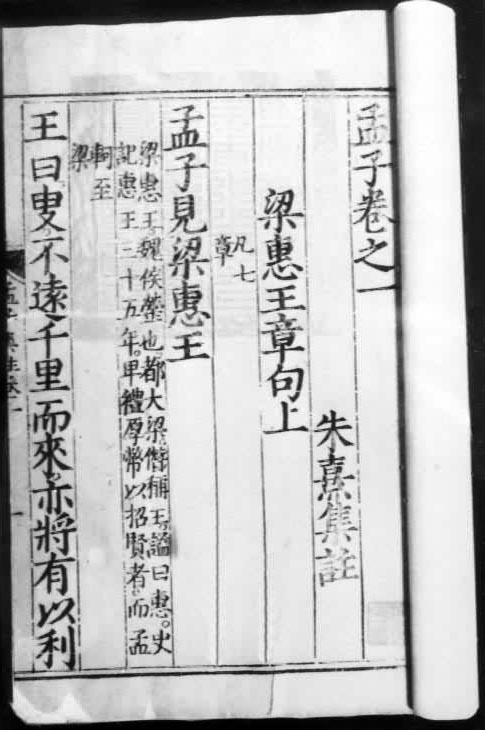 孟子卷之一
朱熹集註
梁惠王章句上
凡七
章
孟子見梁惠王
梁惠王魏侯罃也都大梁僭稱王謚曰惠。史
記惠王三十五年。卑禮厚幣以招賢者而孟
軻至
梁
王曰叟不遠千里而來亦將有以利